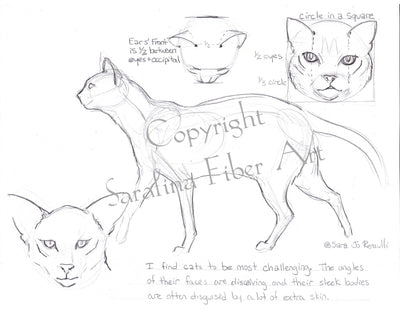 circle in a Square
Ears' Front
is ½ between
eyes + occipital
½
½ eyes
⅓ circle
Copyright
Sarafina Fiber Art
I find cats to be most challenging. The angles
of their faces are disceiving and their sleek bodies
are often disguised by a lot of extra skin.